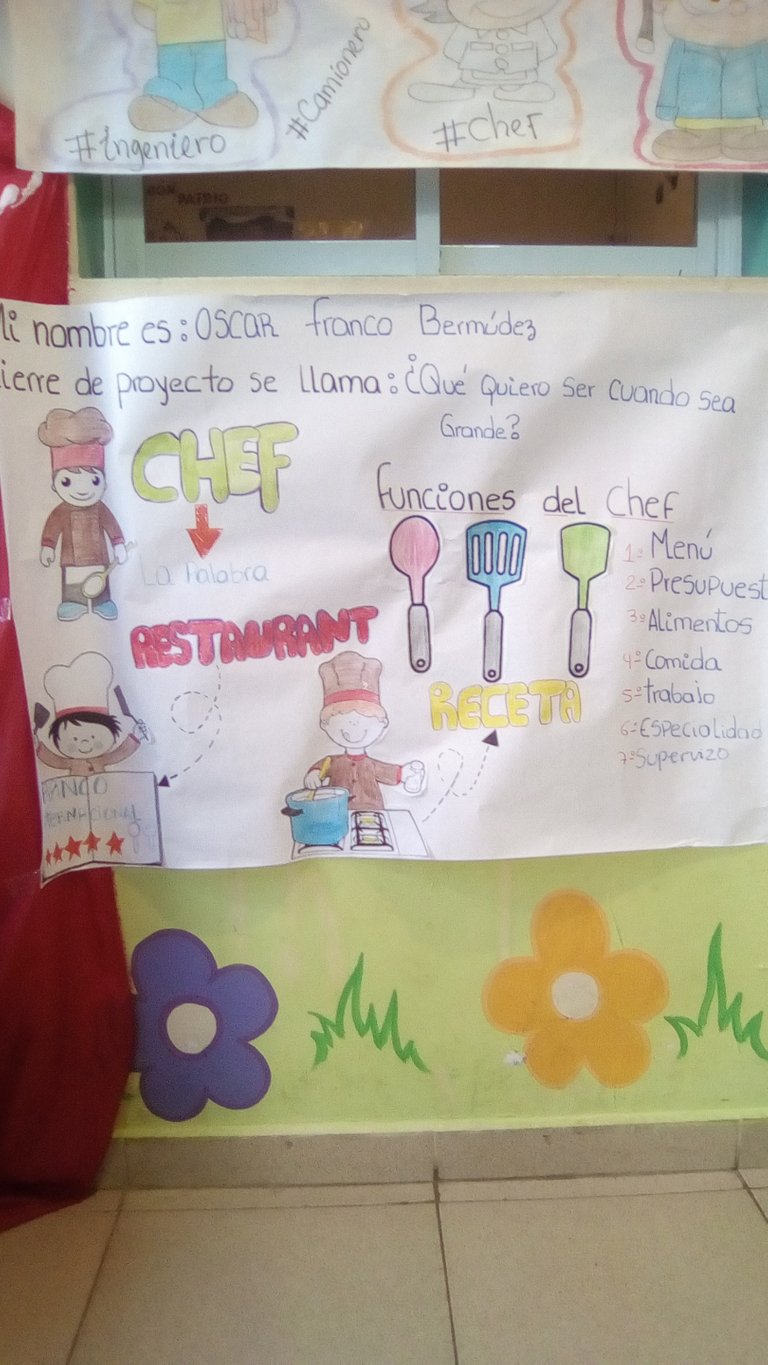 #ingeniero
#Camionero
#Chef
Mi nombre es: OSCAR Franco Bermúdez
ierre de proyecto se llama: ¿Qué quiero ser cuando sea
Grande?
CHEF
La Palabra
RESTAURANT
Funciones del Chef
1º Menú
2º Presupuest
3º Alimentos
4º Comida
5º trabajo
6º Especialidad
7º Supervizo
RECETA